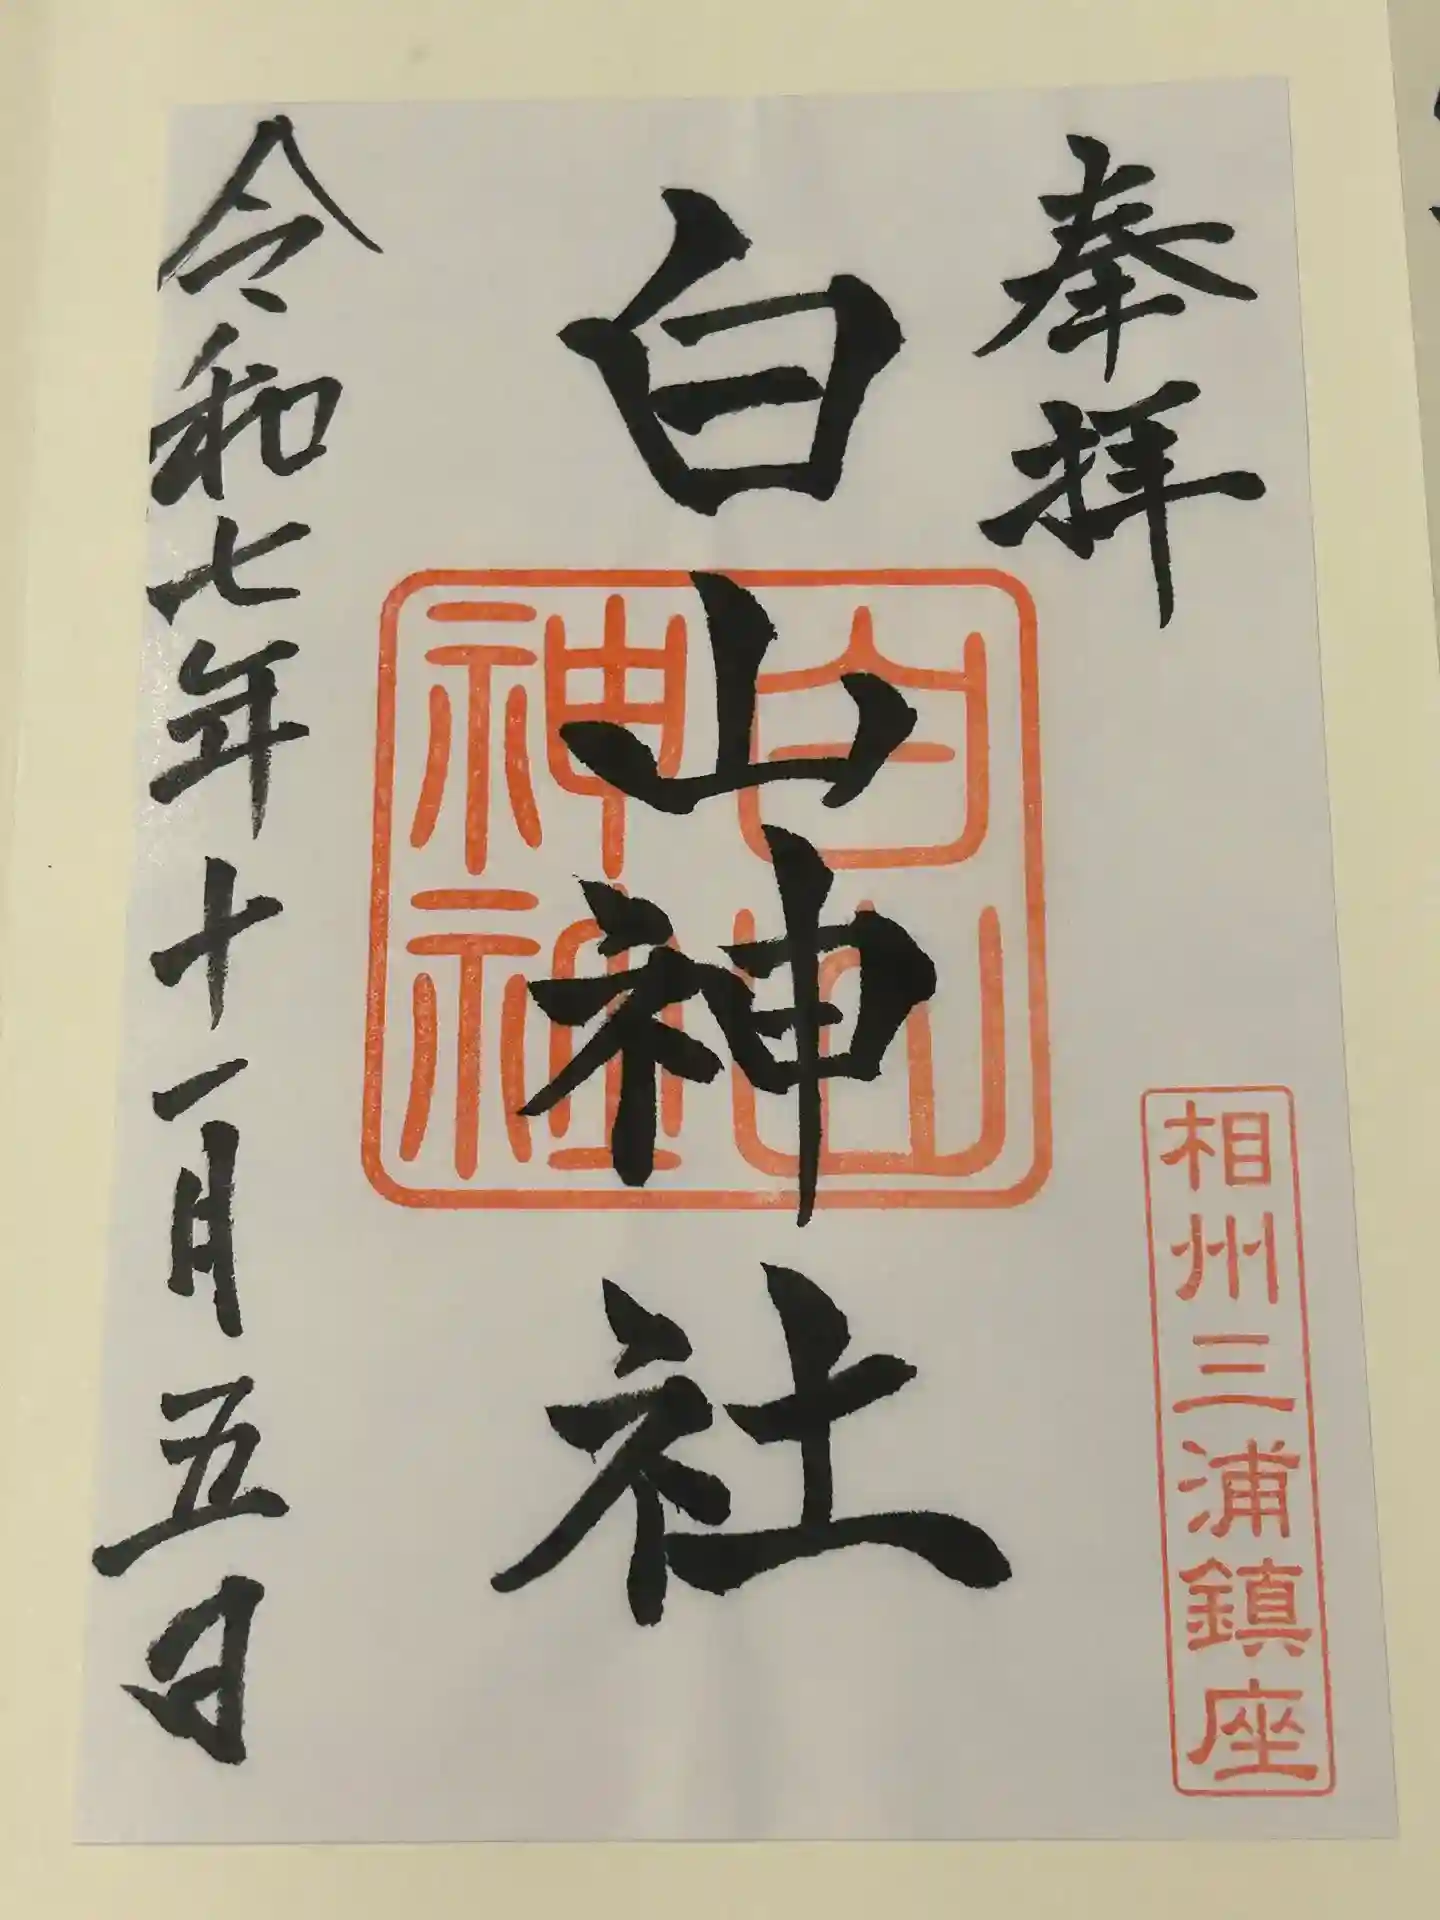 奉拝
相州三浦鎮座
白山神社
白山
神社
令和七年十一月五日